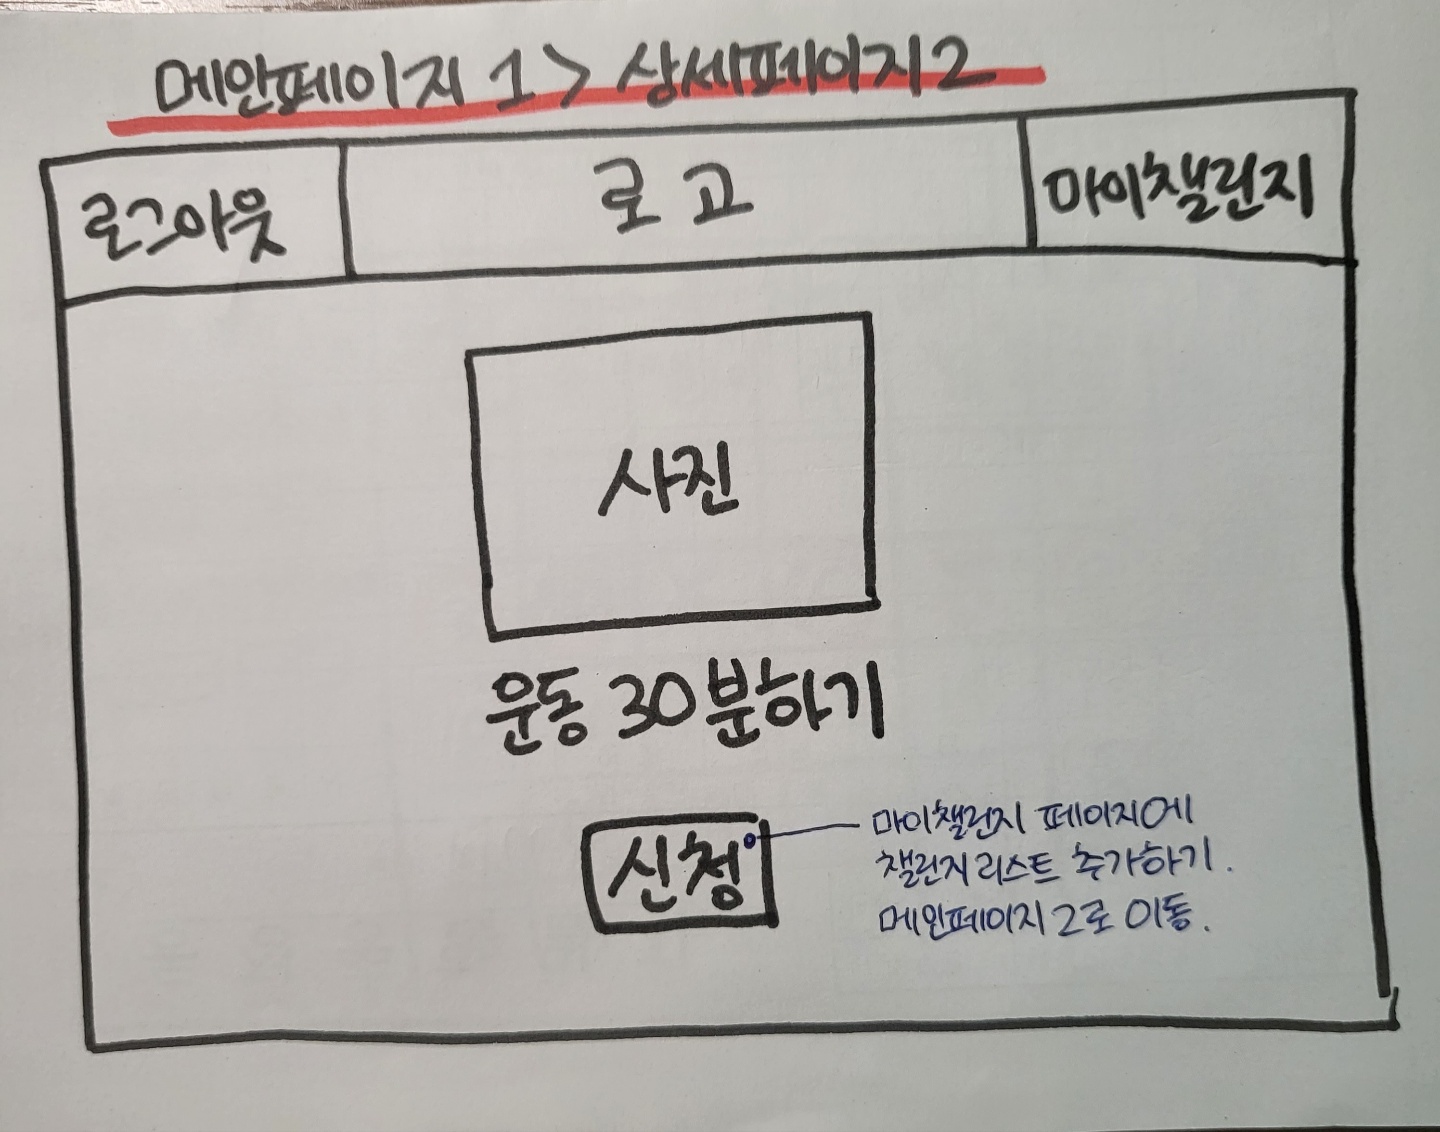 메인페이지 1 > 상세페이지2
로그아웃
로고
마이챌린지
사진
운동 30분하기
신청
마이챌린지 페이지에
챌린지 리스트 추가하기.
메인페이지 2로 이동.